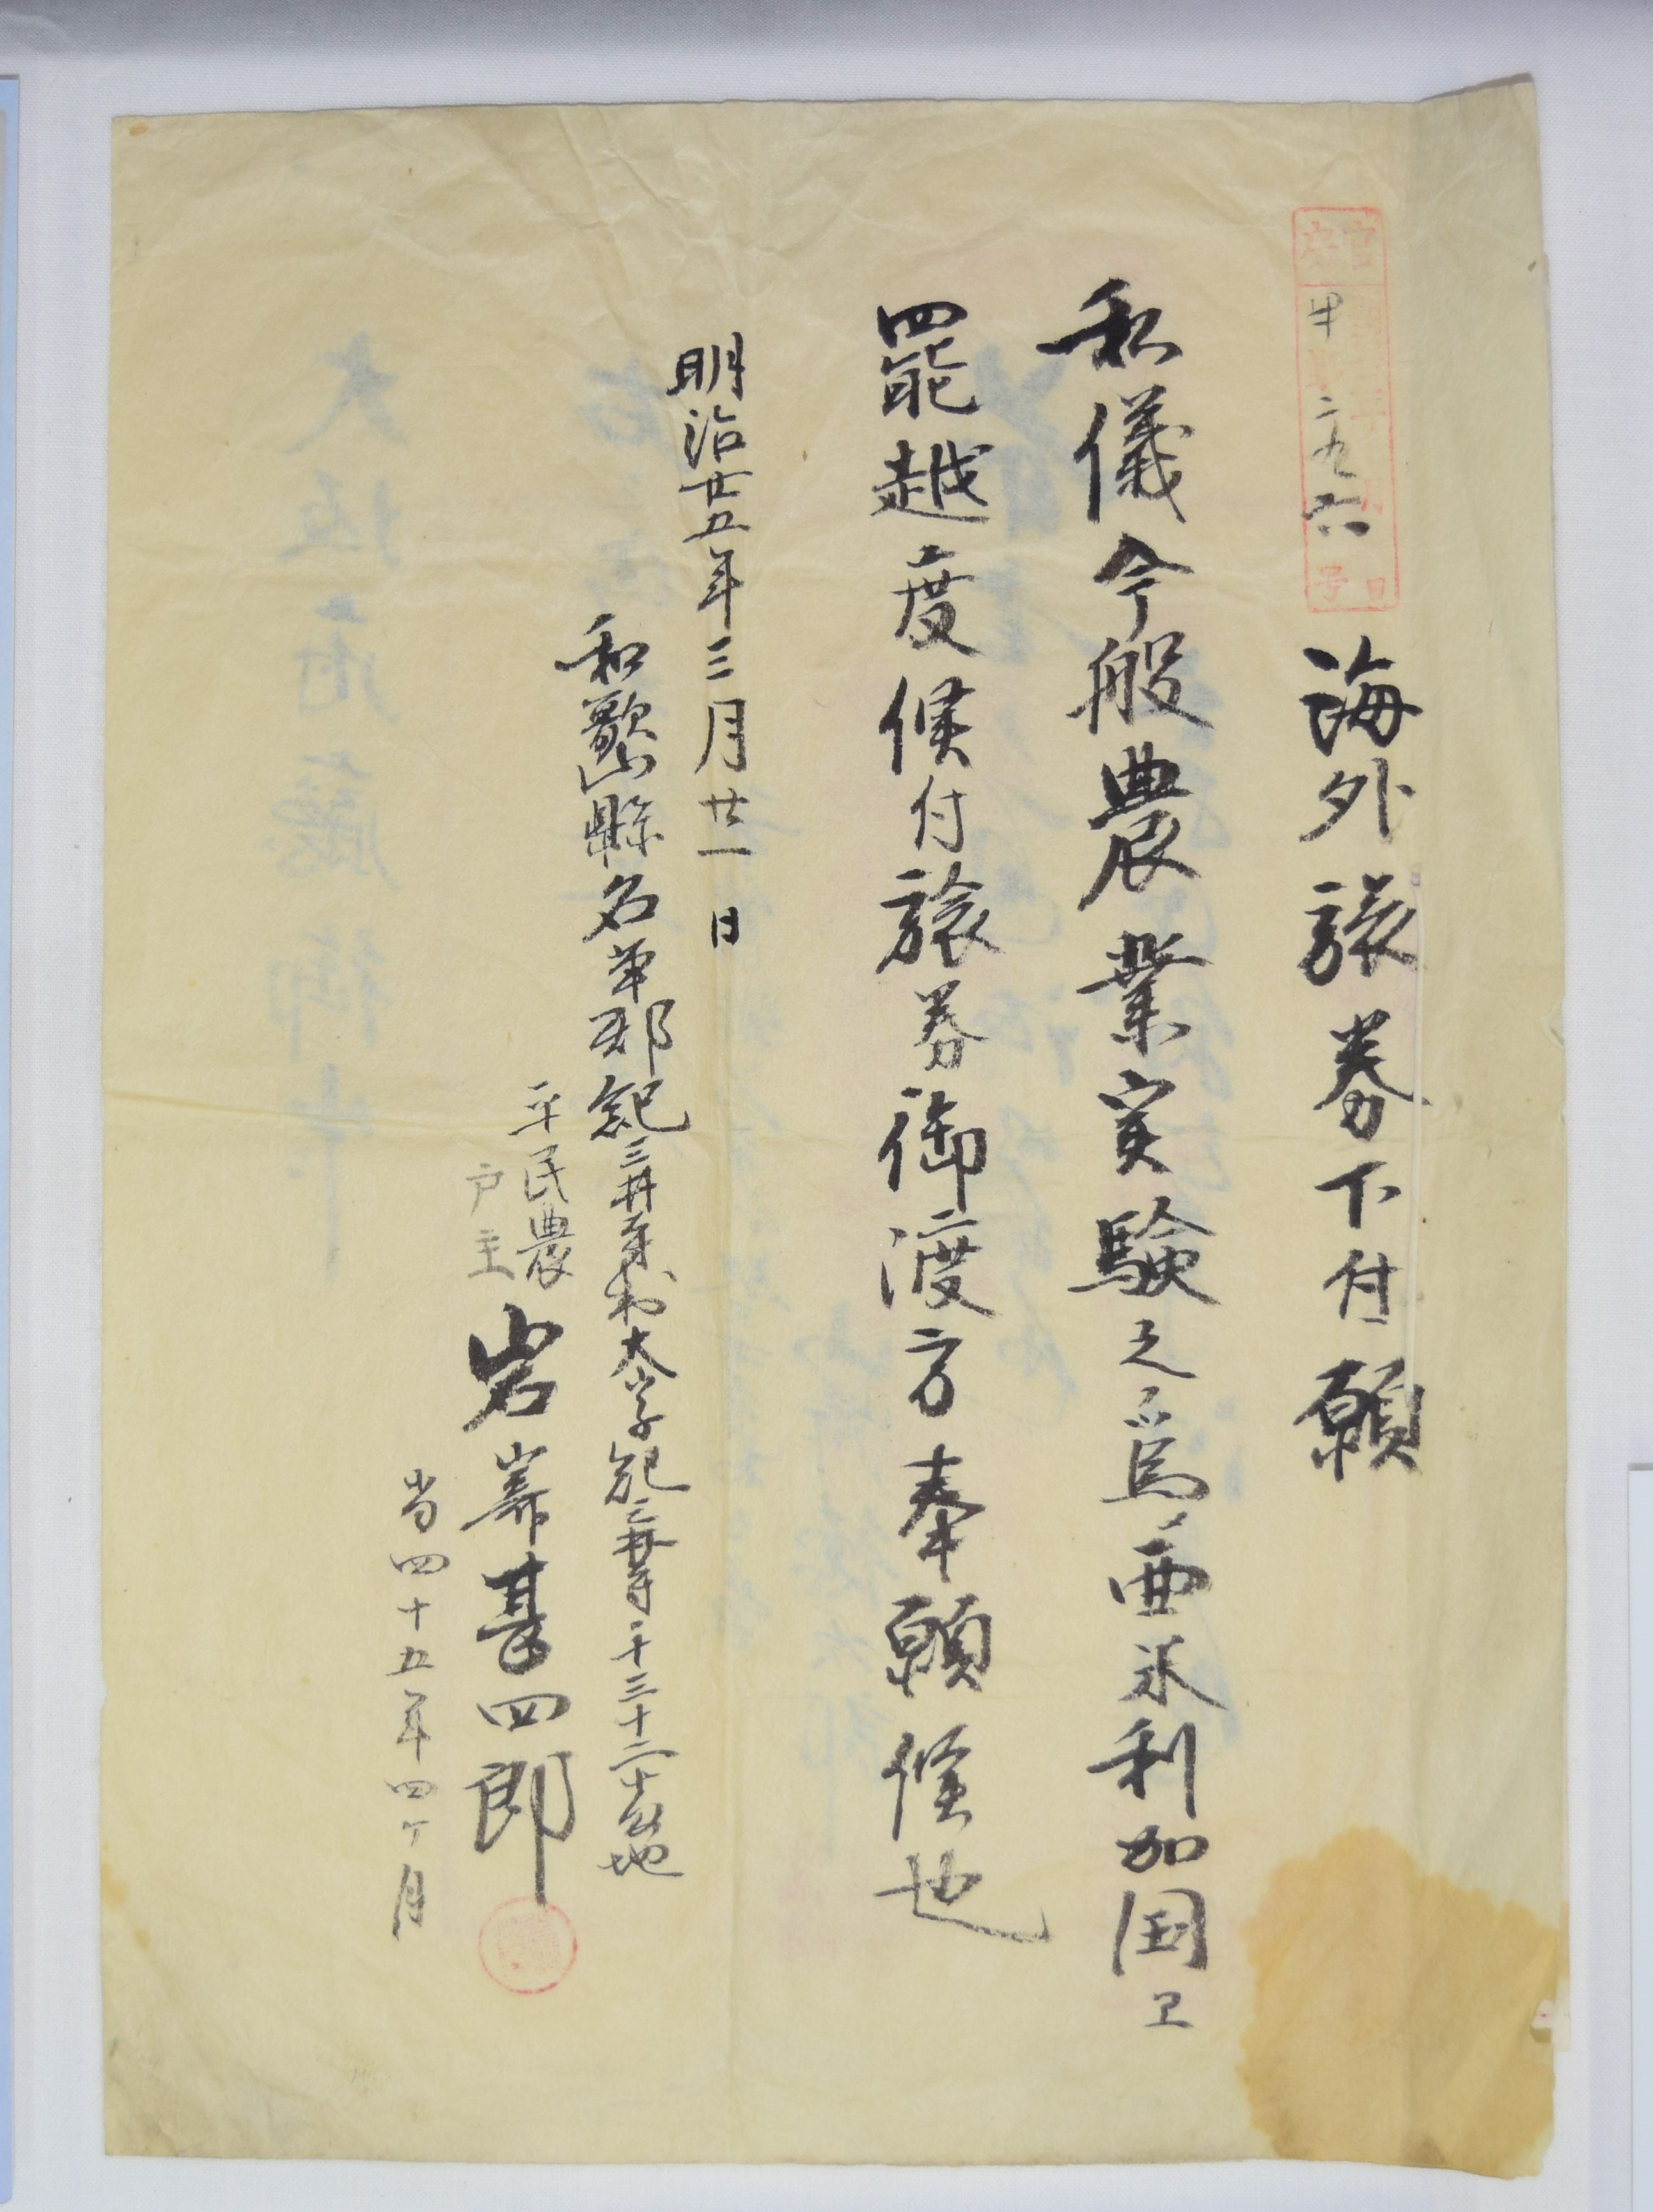 甲 二九六 号
海外旅券下付願
私儀今般農業実験之為亜米利加国エ
罷越度候付旅券御渡方奉願候也
明治廿五年三月廿一日
和歌山縣名草郡紀三井寺村大字紀三井寺 番地
平民農
戸主
岩㟢甚四郎
当四十五年四ケ月